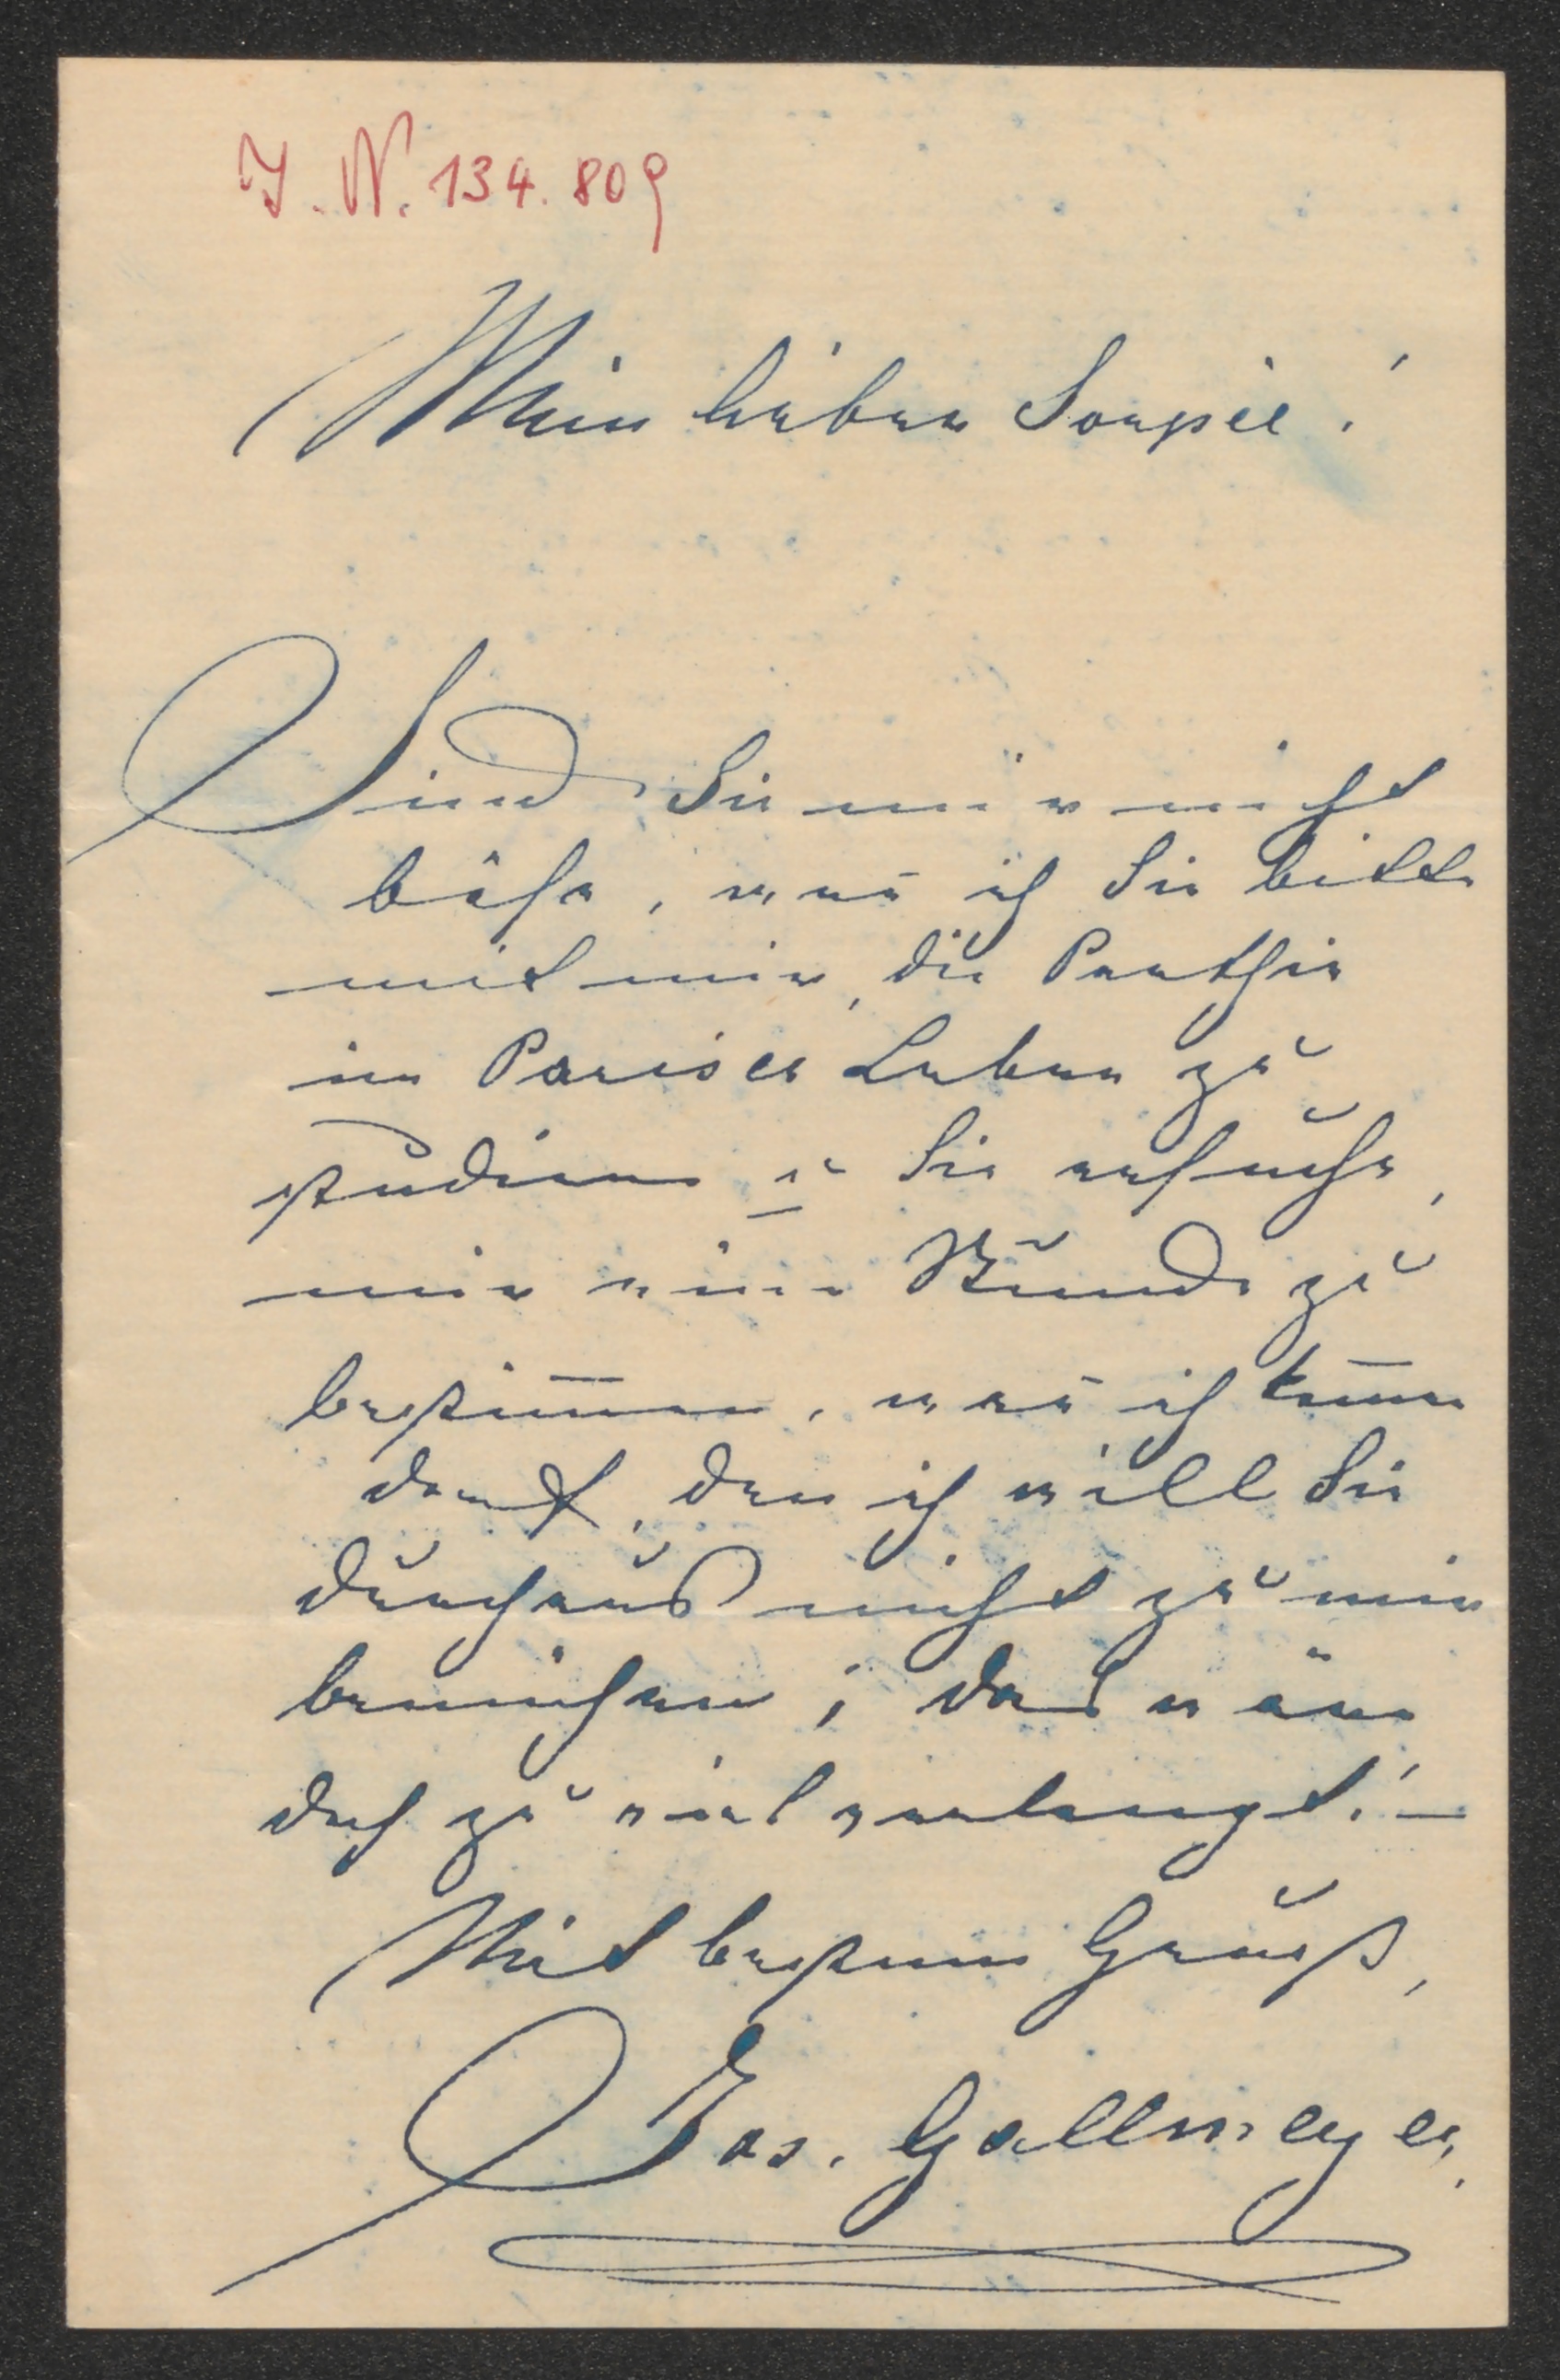 J. N. 134.809
Mein lieber Soupée!
Sind Sie mir nicht
böse, wen̄ ich Sie bitte
mit mir, die Parthie
im Pariser Leben zu
studieren u Sie ersuche,
mir eine Stunde zu
bestim̄en, wen̄ ich kom̄en
darf, den ich will Sie
durchaus nicht zu mir
bemühen; das wäre
doch zu viel verlangt! –
Mit bestem Gruß,
Jos. Gallmeyer.